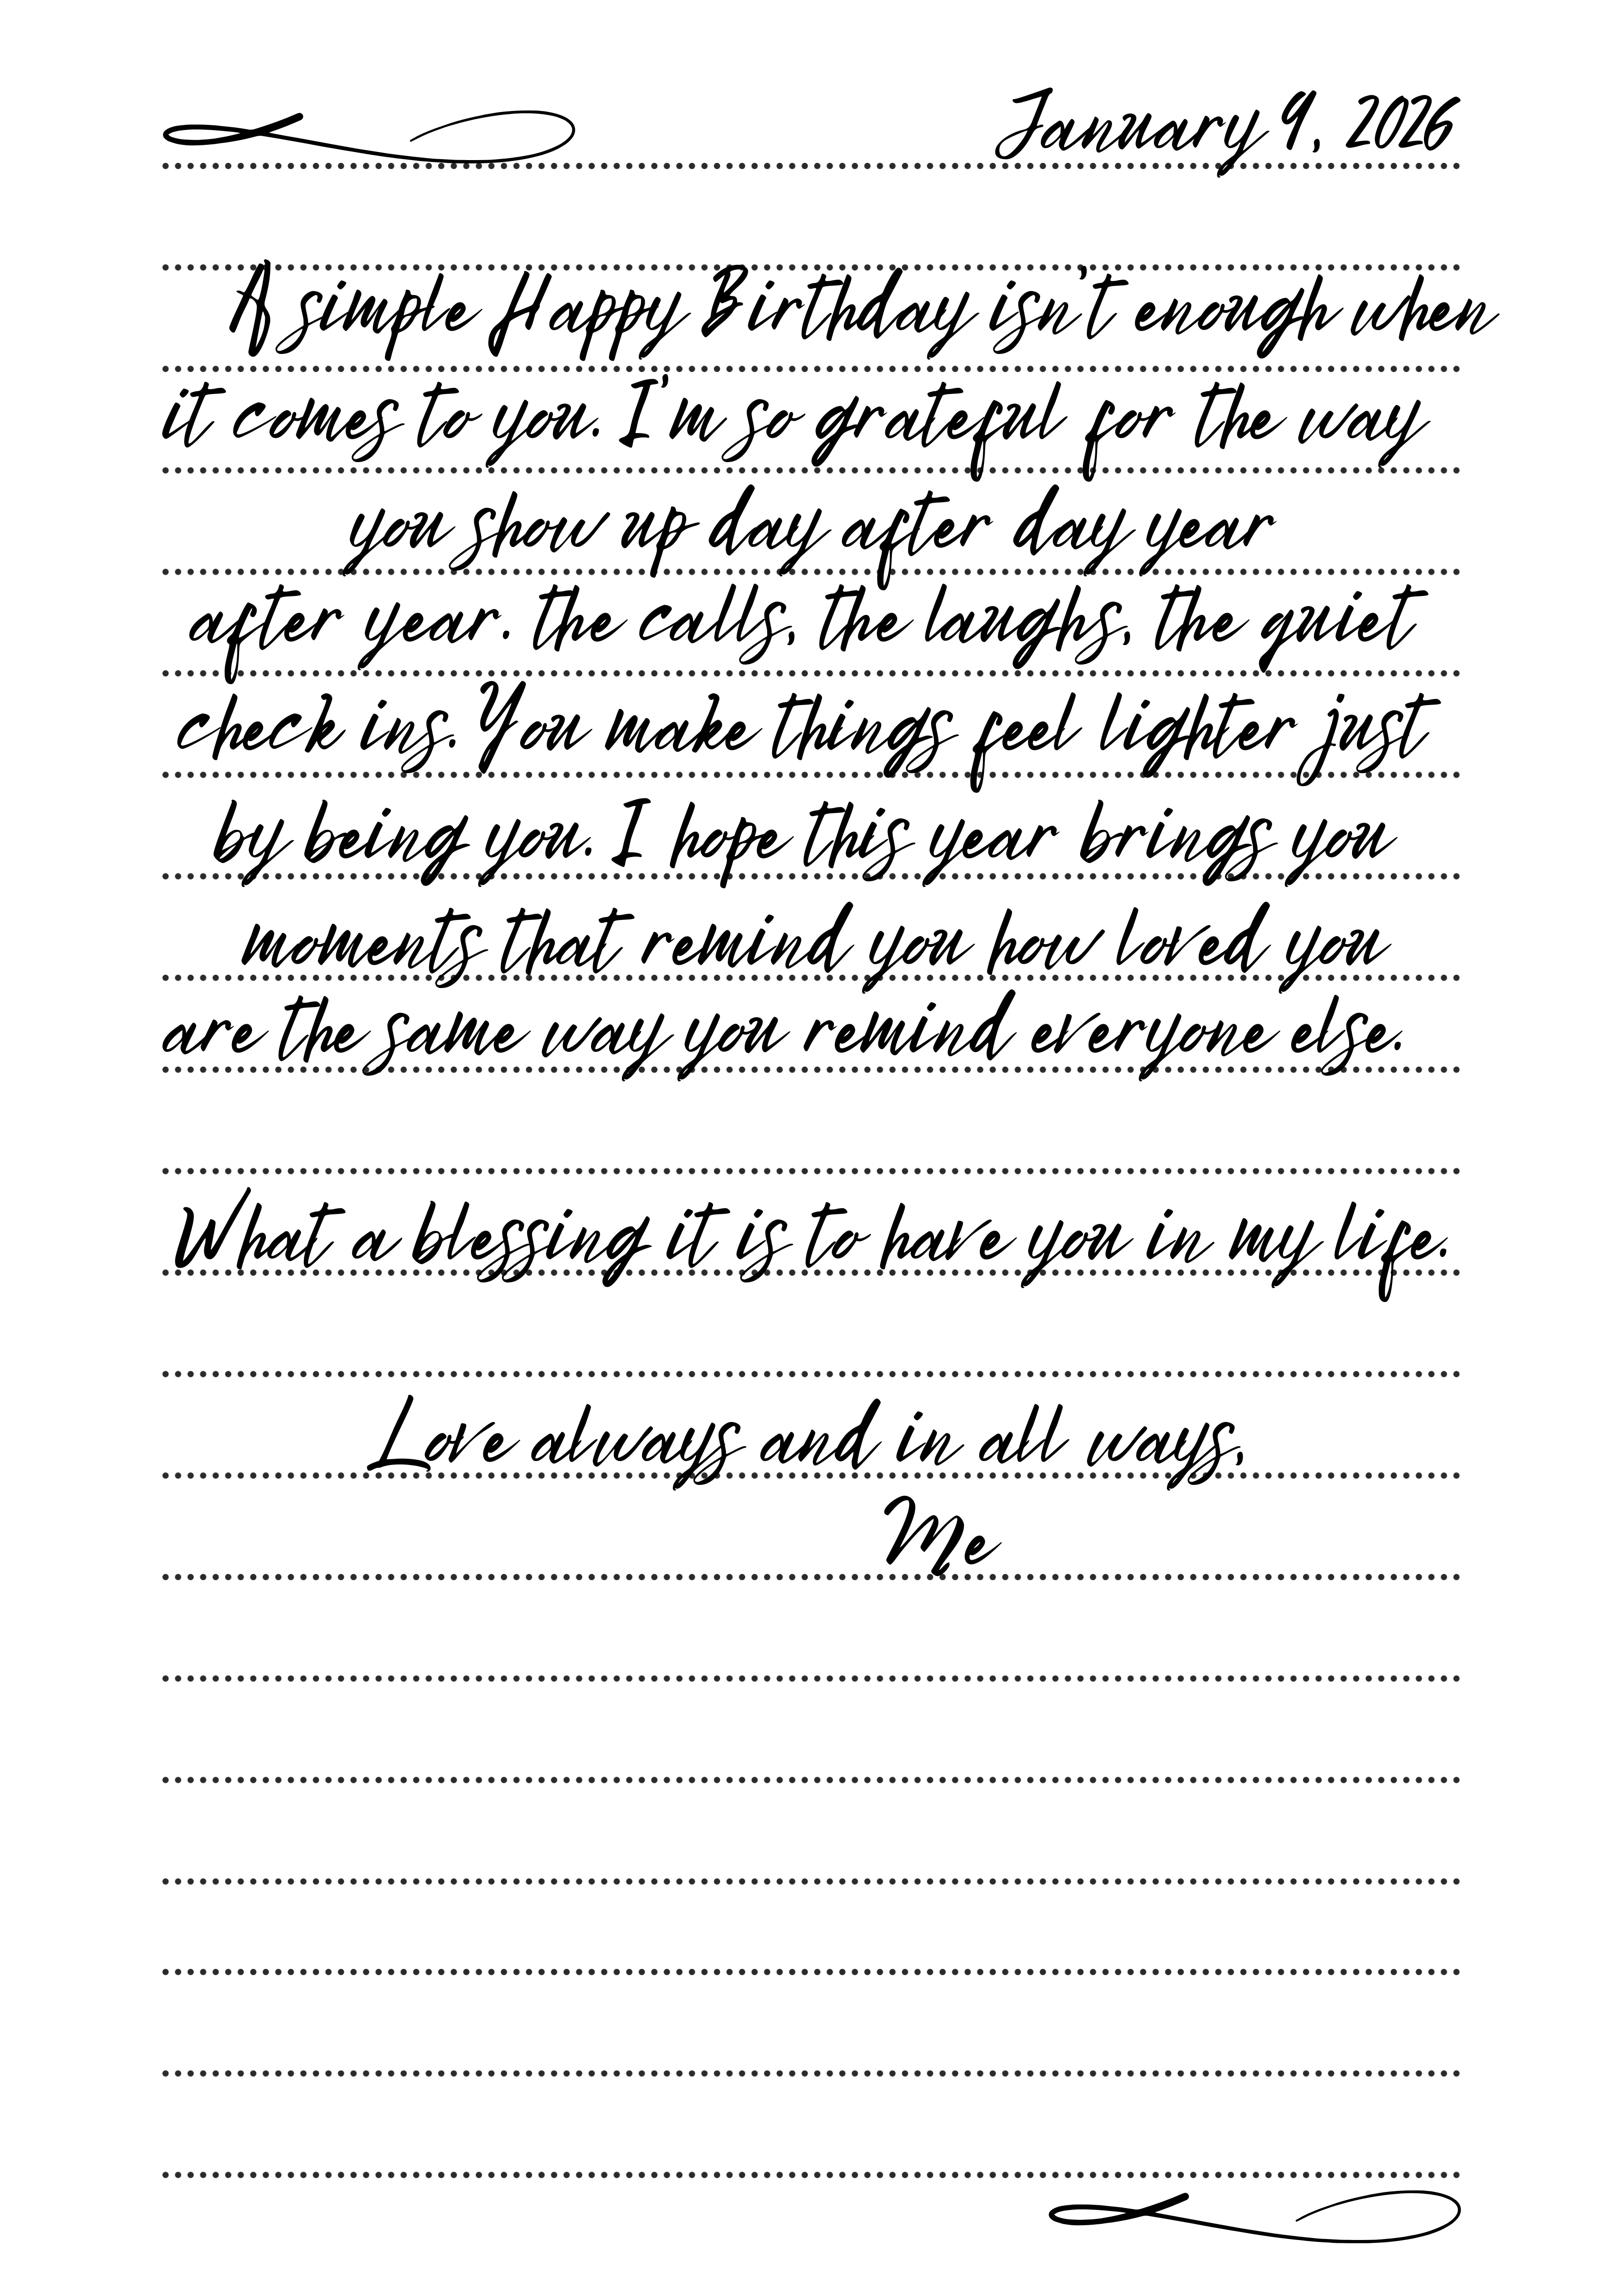 January 9, 2026
A simple Happy Birthday isn't enough when
it comes to you. I'm so grateful for the way
you show up day after day year
after year. the calls, the laughs, the quiet
check ins. You make things feel lighter just
by being you. I hope this year brings you
moments that remind you how loved you
are the same way you remind everyone else.
What a blessing it is to have you in my life.
Love always and in all ways,
Me